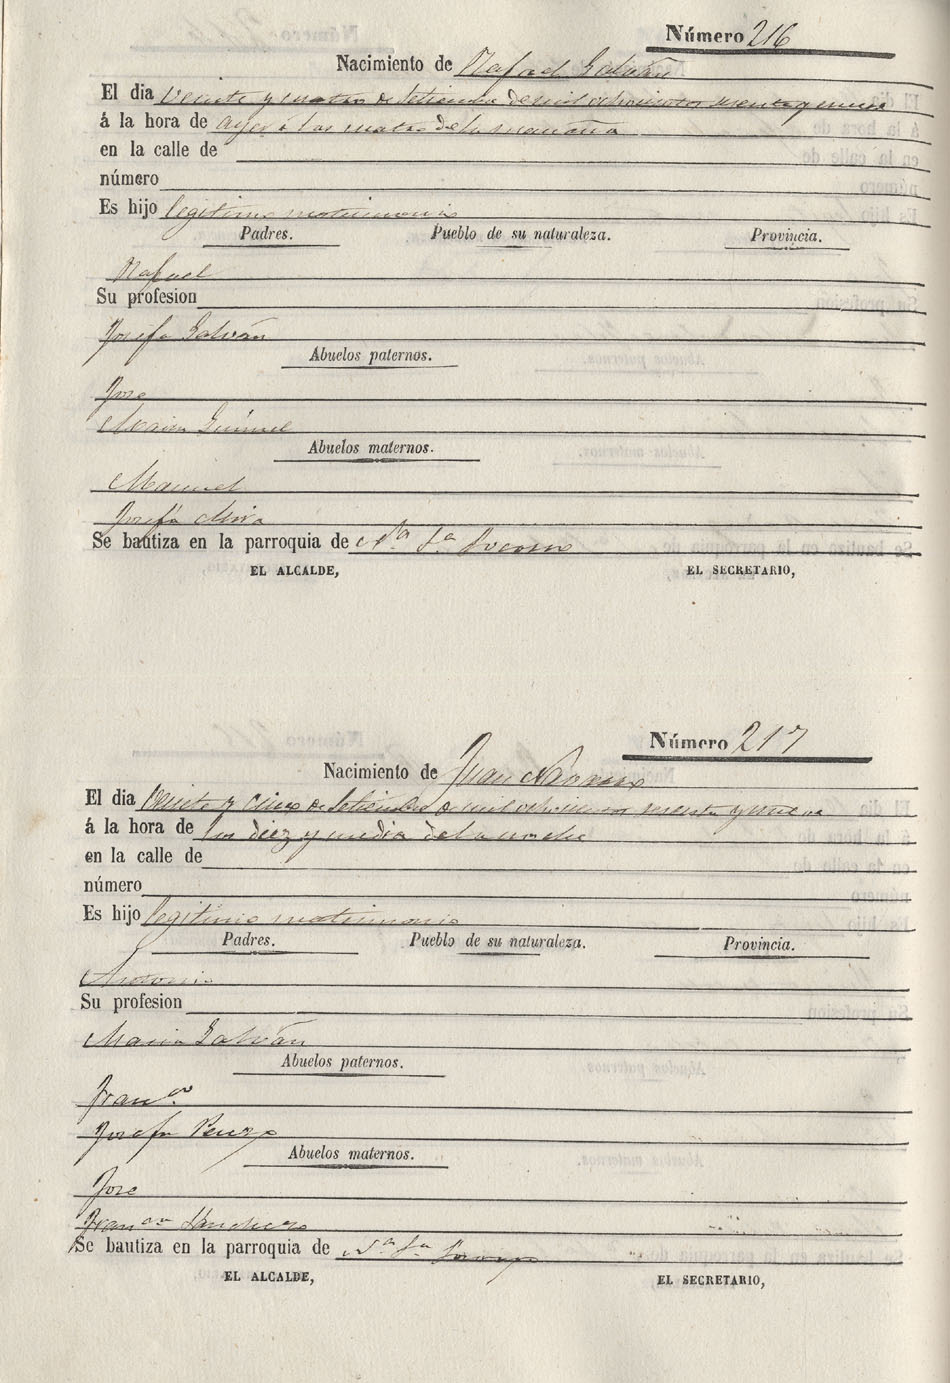 Número 216
Nacimiento de Rafael Galván
El dia veinte y cuatro de Setiembre de mil ochocientos sesenta y nueve
á la hora de ayer á las cuatro de la mañana
en la calle de
número
Es hijo legitimo matrimonio
Padres. Pueblo de su naturaleza. Provincia.
Rafael
Su profesion
Josefa Galván
Abuelos paternos.
Jose
Maria
Abuelos maternos.
Manuel
Josefa Mira
Se bautiza en la parroquia de Nª Sª Socorro
EL ALCALDE, EL SECRETARIO,
Número 217
Nacimiento de Juan Navarro
El dia Veinte y cinco de Setiembre de mil ochocientos sesenta y nueve
á la hora de las diez y media de la noche
en la calle de
número
Es hijo legitimo matrimonio
Padres. Pueblo de su naturaleza. Provincia.
Antonio
Su profesion
Maria Galván
Abuelos paternos.
Franco
Josefa Perez
Abuelos maternos.
Jose
Franca Sanchez
Se bautiza en la parroquia de Nª Sª Socorro
EL ALCALDE, EL SECRETARIO,